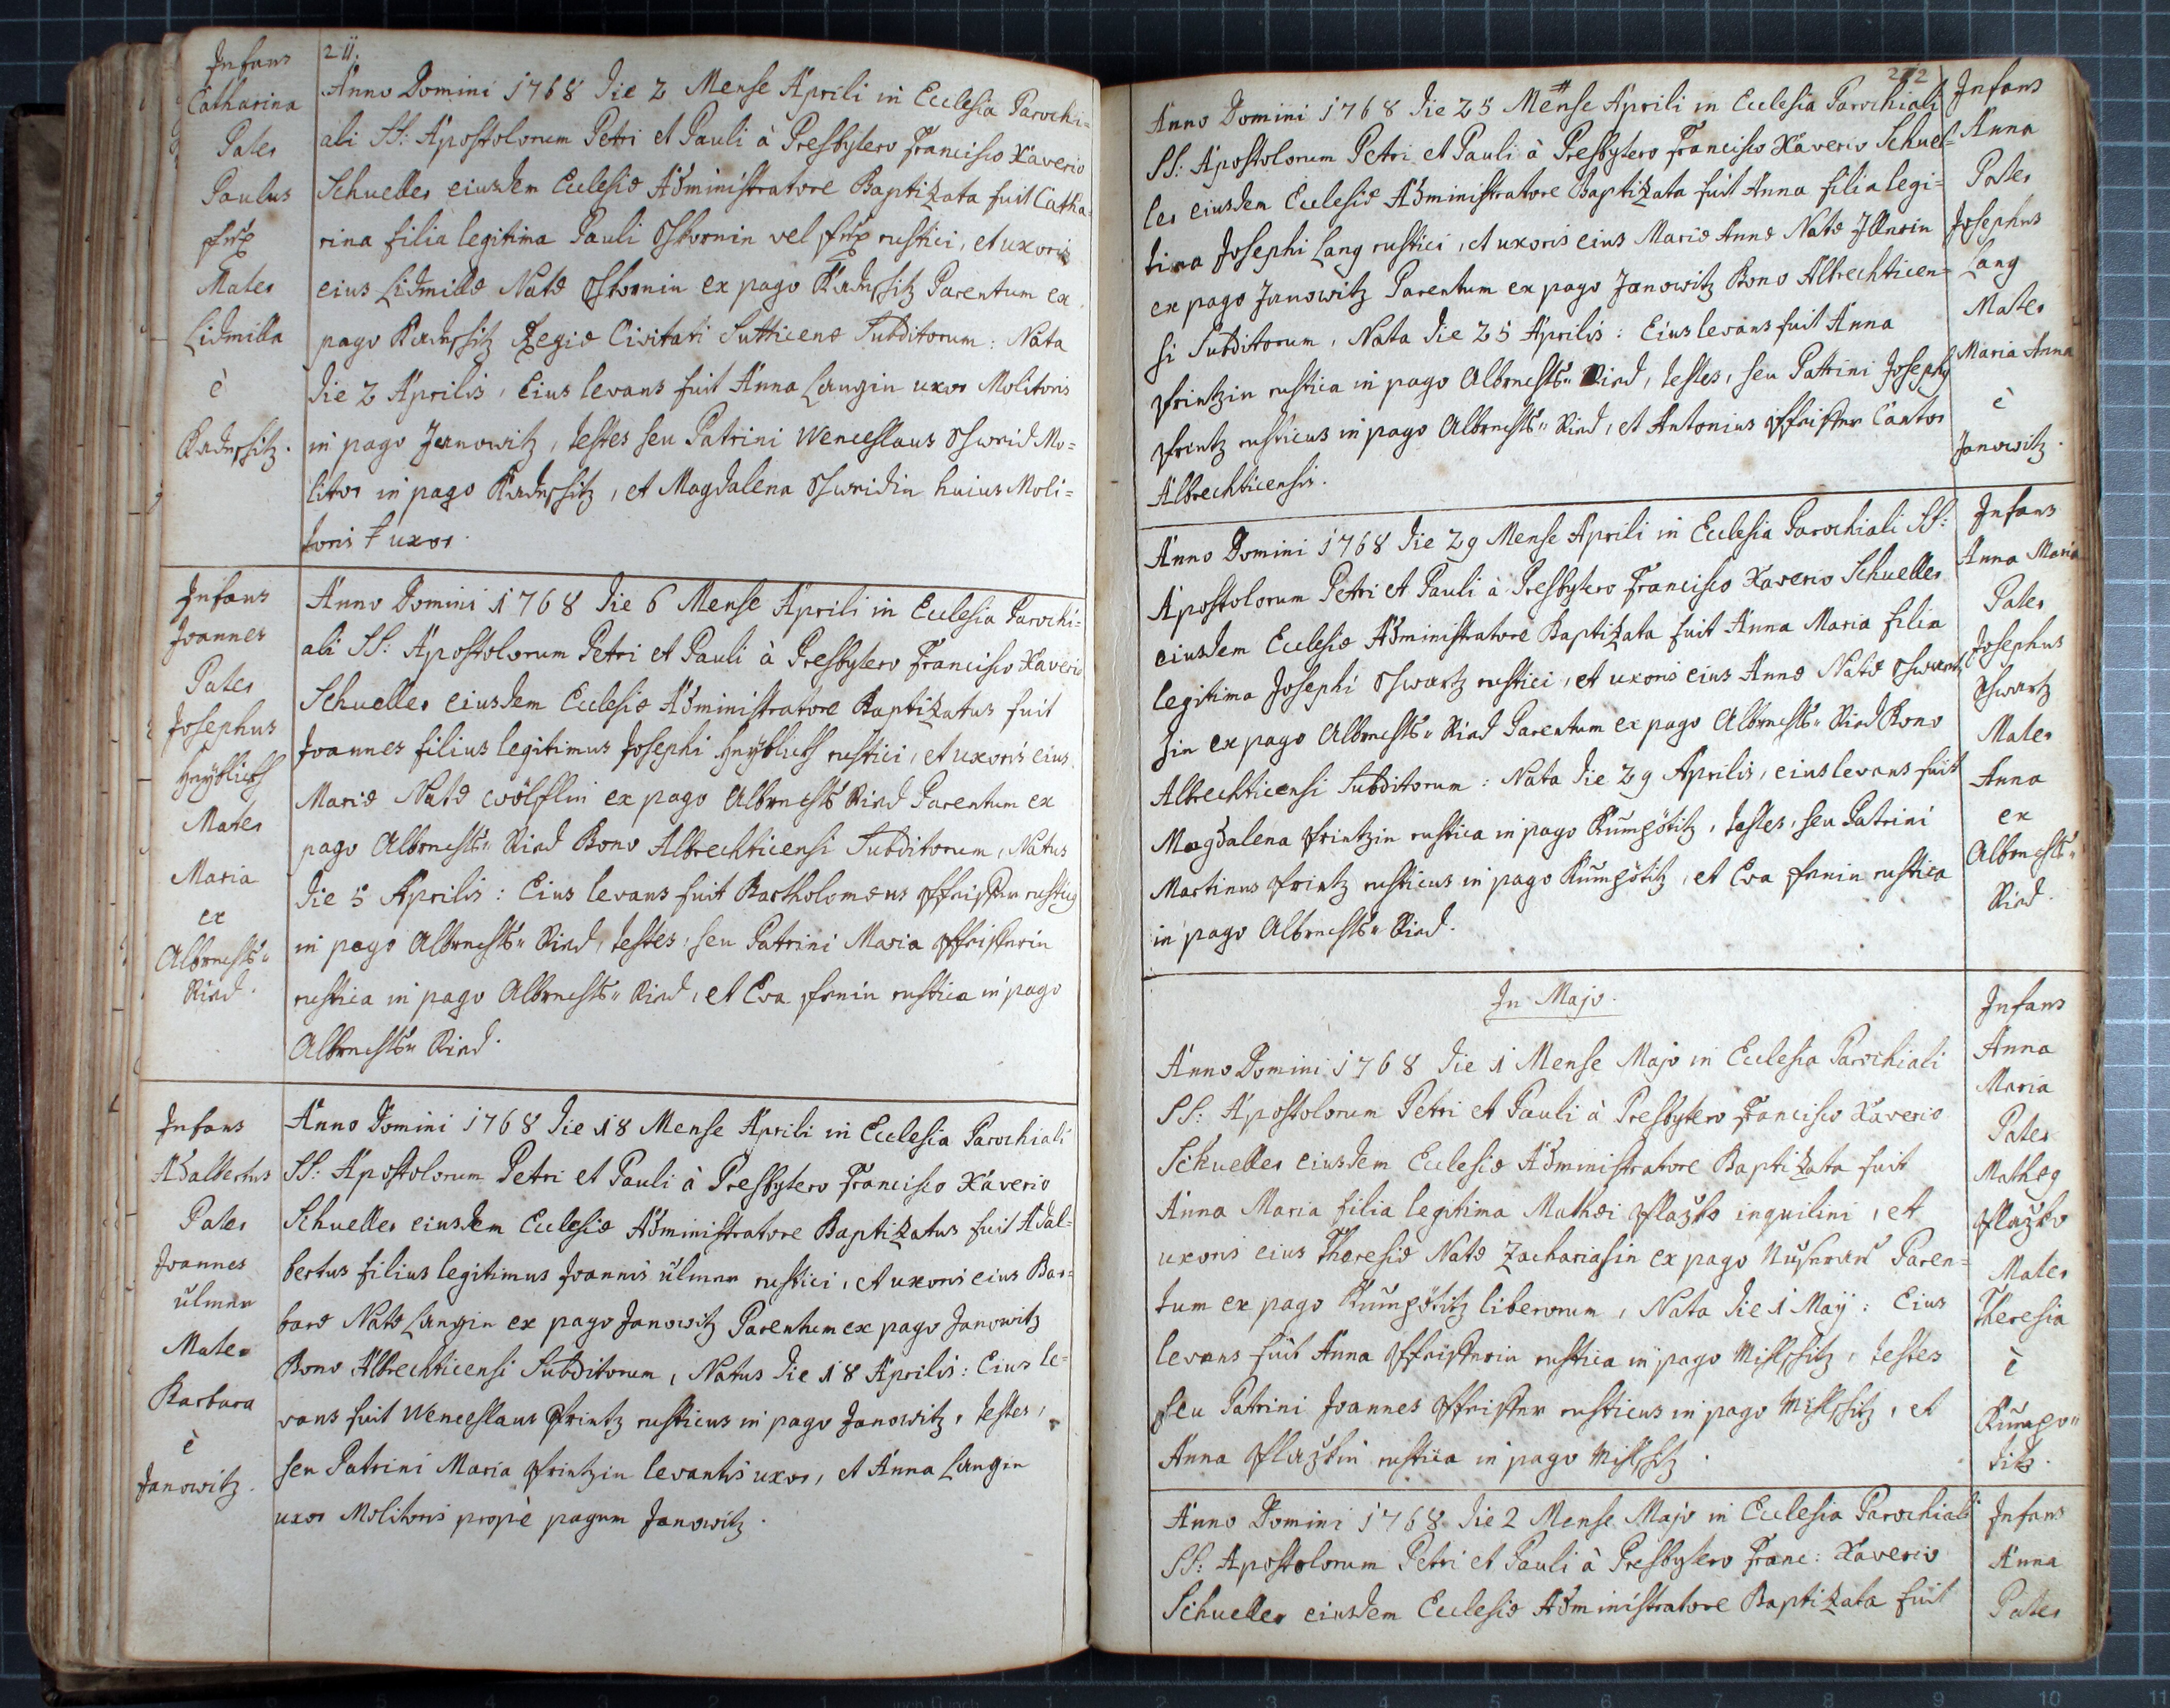 211.
Infans
Catharina
Pater
Paulus
Mater
Lidmilla
è
Kadeschitz.
Anno Domini 1768 die 2 Mense Aprili in Ecclesia Parochi=
ali SS: Apostolorum Petri et Pauli à Presbytero Francisco Xaverio
Schueller eiusdem Ecclesiæ Administratore Baptizata fuit Catha=
rina filia legitima Pauli vel rustici, et uxoris
eius Lidmillæ Natæ ex pago Parentum ex
pago Regiæ Civitati Sutticenæ Subditorum: Nata
die 2 Aprilis, Eius levans fuit Anna Langin uxor Molitoris
in pago Janowitz, testes seu Patrini Wenceslaus Mo=
litor in pago, et Magdalena huius Moli=
toris uxor.
Infans
Joannes
Pater
Josephus
Mater
Maria
ex
Albrechts=
Ried.
Anno Domini 1768 die 6 Mense Aprili in Ecclesia Parochi=
ali SS: Apostolorum Petri et Pauli à Presbytero Francisco Xaverio
Schueller eiusdem Ecclesiæ Administratore Baptizatus fuit
Joannes filius legitimus Josephi rustici, et uxoris eius
Mariæ Natæ Wölflin ex pago Albrechts Ried Parentum ex
pago Albrechts= Ried Bono Albrechticensi Subditorum, Natus
die 5 Aprilis: Eius levans fuit Bartholomæus Pfeiffer rusticus
in pago Albrechts= Ried, testes, seu Patrini Maria Pfeifferin
rustica in pago Albrechts= Ried, et Eva rustica in pago
Albrechts= Ried.
Infans
Adalbertus
Pater
Joannes
ülmer
Mater
Barbara
è
Janowitz.
Anno Domini 1768 die 18 Mense Aprili in Ecclesia Parochiali
SS: Apostolorum Petri et Pauli à Presbytero Francisco Xaverio
Schueller eiusdem Ecclesiæ Administratore Baptizatus fuit Adal=
bertus filius legitimus Joannis ülmer rustici, et uxoris eius Bar=
baræ Natæ Langin ex pago Janowitz Parentum ex pago Janowitz
Bono Albrechticensi Subditorum, Natus die 18 Aprilis: Eius le=
vans fuit Wenceslaus Printz rusticus in pago Janowitz, testes,
seu Patrini Maria Printzin levantis uxor, et Anna Langin
uxor Molitoris propè pagum Janowitz.
212
Anno Domini 1768 die 25 Mense Aprili in Ecclesia Parochiali
SS: Apostolorum Petri et Pauli à Presbytero Francisco Xaverio Schuel=
ler eiusdem Ecclesiæ Administratore Baptizata fuit Anna filia legi=
tima Josephi Lang rustici, et uxoris eius Mariæ Annæ Natæ
ex pago Janowitz Parentum ex pago Janowitz Bono Albrechticen=
si Subditorum, Nata die 25 Aprilis: Eius levans fuit Anna
Printzin rustica in pago Albrechts= Ried, testes, seu Patrini Josephus
Printz rusticus in pago Albrechts= Ried, et Antonius Pfeiffer Cantor
Albrechticensis.
Infans
Anna
Pater
Josephus
Lang
Mater
Maria Anna
è
Janowitz.
Anno Domini 1768 die 29 Mense Aprili in Ecclesia Parochiali SS:
Apostolorum Petri et Pauli à Presbytero Francisco Xaverio Schueller
eiusdem Ecclesiæ Administratore Baptizata fuit Anna Maria filia
legitima Josephi Schwartz rustici, et uxoris eius Annæ Natæ
ex pago Albrechts= Ried Parentum ex pago Albrechts= Ried Bono
Albrechticensi Subditorum: Nata die 29 Aprilis, eius levans fuit
Magdalena Printzin rustica in pago Kumpötitz, testes, seu Patrini
Martinus Printz rusticus in pago Kumpötitz, et Eva rustica
in pago Albrechts= Ried.
Infans
Anna Maria
Pater
Josephus
Schwartz
Mater
Anna
ex
Albrechts=
Ried.
In Majo.
Anno Domini 1768 die 1 Mense Majo in Ecclesia Parochiali
SS: Apostolorum Petri et Pauli à Presbytero Francisco Xaverio
Schueller eiusdem Ecclesiæ Administratore Baptizata fuit
Anna Maria filia legitima Mathæi inquilini, et
uxoris eius Theresiæ Natæ Zachariasin ex pago Paren=
tum ex pago Kumpötitz liberorum, Nata die 1 Maÿ: Eius
levans fuit Anna Pfeifferin rustica in pago, testes
seu Patrini Joannes Pfeiffer rusticus in pago, et
Anna rustica in pago.
Infans
Anna
Maria
Pater
Mathæus
Mater
Theresia
è
Kumpö=
titz.
Anno Domini 1768 die 2 Mense Majo in Ecclesia Parochiali
SS: Apostolorum Petri et Pauli à Presbytero Franc: Xaverio
Schueller eiusdem Ecclesiæ Administratore Baptizata fuit
Infans
Anna
Pater